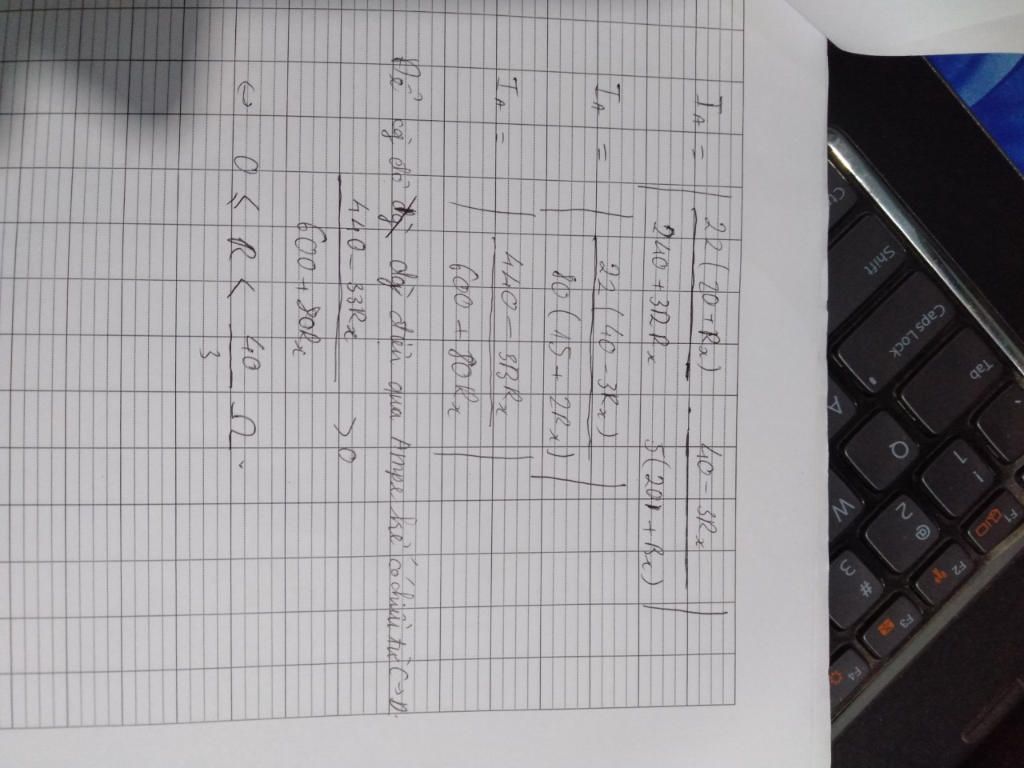 I_A = | 22(20+Rx) / 240+31Rx · 40-3Rx / 5(20+Rx) |
I_A = | 22(40-3Rx) / 80(15+2Rx) |
I_A = | 440-33Rx / 600+80Rx |
điện qua Ampe kế có chiều từ C→D.
440-33Rx / 600+80Rx > 0
⇔ 0 ≤ R < 40/3 Ω.
Shift
Caps Lock
Tab
A
Q
W
! 1
@ 2
# 3
F1
F2
F3
F4